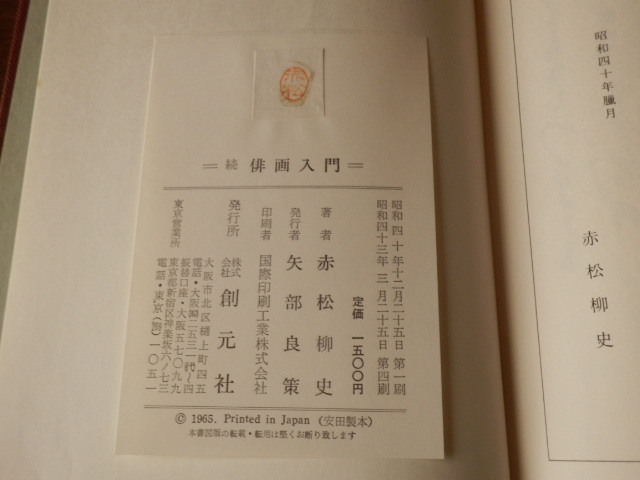 続 俳画入門
昭和四十年十二月二十五日 第一刷
昭和四十三年 三月二十五日 第四刷
定価 一五〇〇円
著者 赤松柳史
発行者 矢部良策
印刷者 国際印刷工業株式会社
発行所 株式会社 創元社
大阪市北区樋上町四五
電話・大阪㊂二五三一代〜四
振替口座・大阪五七〇九九
東京営業所 東京都新宿区神楽坂六ノ七三
電話・東京(㊙)一〇五一
© 1965, Printed in Japan (安田製本)
本書図版の転載・転用は堅くお断り致します
昭和四十年臘月
赤松柳史